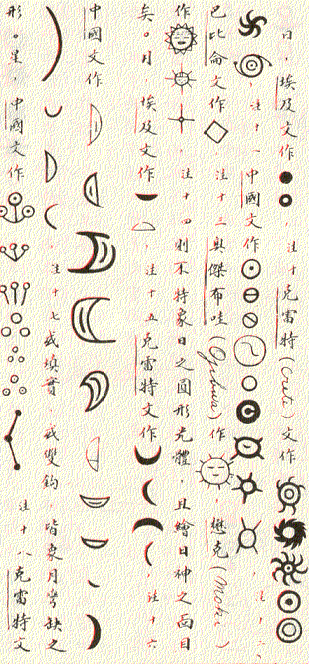 日，埃及文作，注十克雷特(Crete)文作
，注十一中國文作，注十二，
巴比侖文作，注十三奧傑布哇(Ojibua)作，懋克(Moki)
作，注十四則不特象日之圓形光體，且繪日神之面目
矣。月埃及文作，注十五克雷特文作，注十六
中國文作
，注十七或填實，或雙鉤，皆象月彎缺之
形。星，中國文作注十八克雷特文